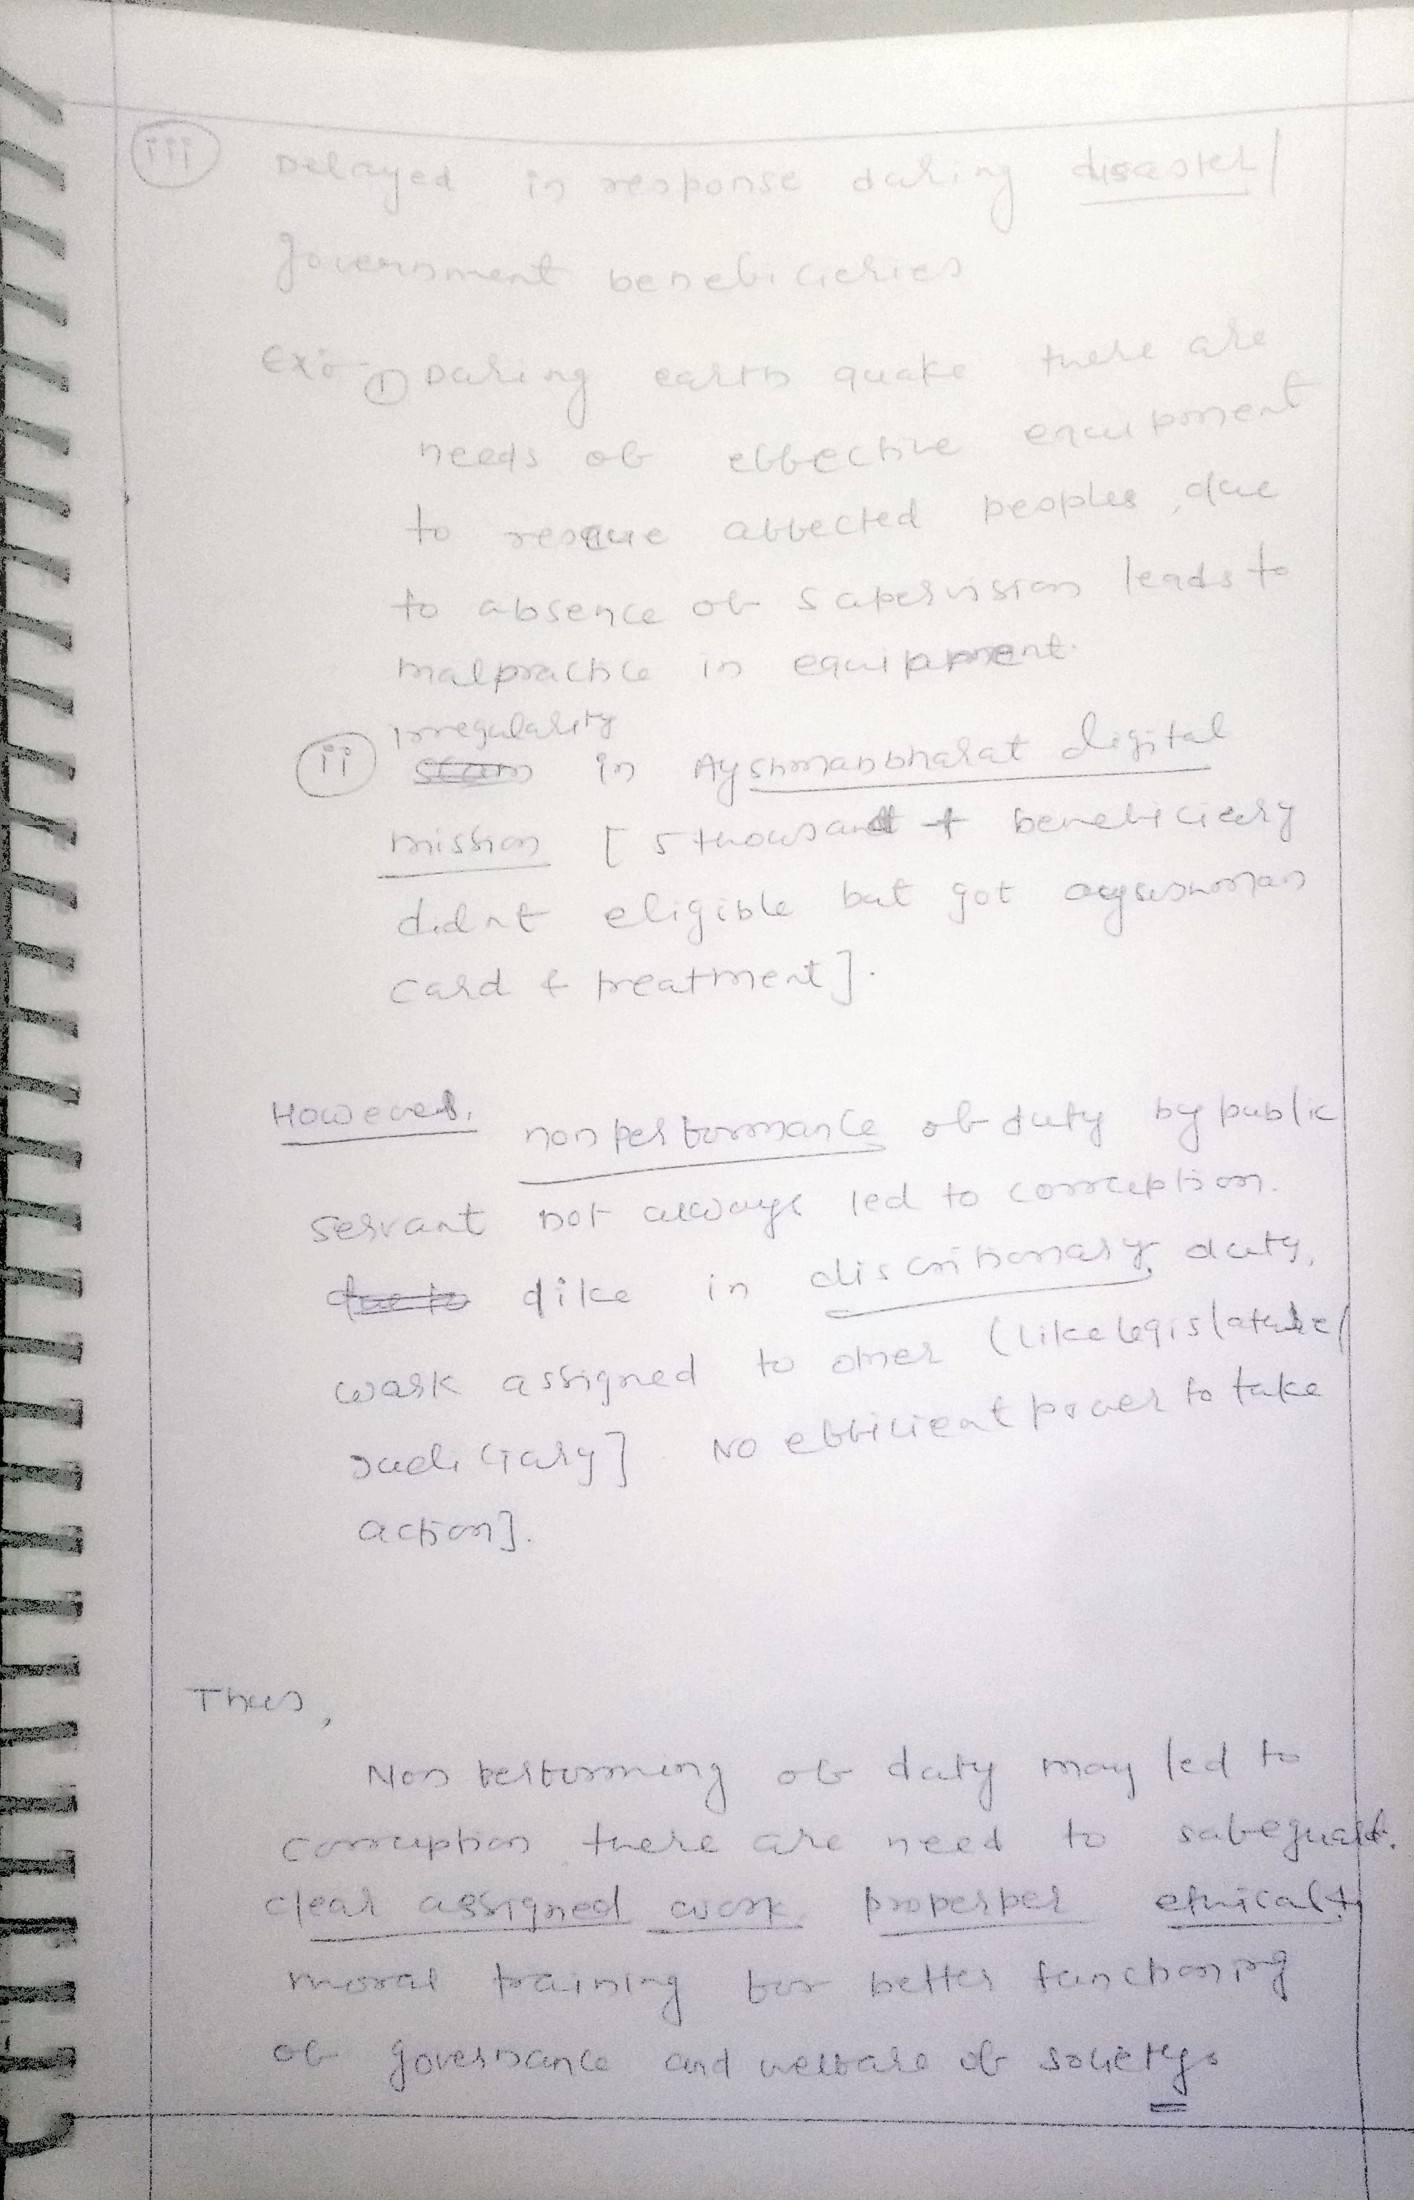 iii Delayed in response during disaster/
government beneficieries
Ex:- ① During earth quake there are
needs of effective equipment
to rescue affected peoples, due
to absence of supervision leads to
malpractice in equipment.
irregularity
ii scam in Ayshmanbharat digital
mission [5 thousand + beneficieery
didnt eligible but got
card & treatment].
However, non performance of duty by public
servant not always led to corruption.
due to like in discritionary duty,
work assigned to other (like legislature/
judiciary] No efficient power to take
action].
Thus,
Non performing of duty may led to
corruption there are need to safeguard.
clear assigned work, properper ethical &
moral training for better functioning
of governance and welfare of society.